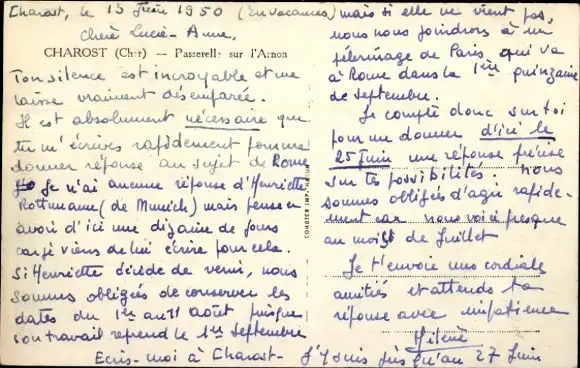 Charost, le 15 Juin 1950 (En vacances)
Chère Lucie-Anne,
CHAROST (Cher) - Passerelle sur l'Arnon
Ton silence est incroyable et me
laisse vraiment désemparée.
Il est absolument nécessaire que
tu m'écrives rapidement pour me
donner réponse au sujet de Rome
Je n'ai aucune réponse d'Henriette
Rottmann (de Munich) mais pense en
avoir d'ici une dizaine de jours
car je viens de lui écrire pour cela.
Si Henriette décide de venir, nous
sommes obligées de conserver les
dates du 1er au 11 août puisque
son travail reprend le 1er Septembre
mais si elle ne vient pas,
nous nous joindrons à un
pélerinage de Paris qui va
à Rome dans la 1ère quinzaine
de septembre.
Je compte donc sur toi
pour me donner d'ici le
25 Juin une réponse précise
sur tes possibilités. Nous
sommes obligées d'agir rapide-
ment car nous voici presque
au mois de Juillet
Je t'envoie mes cordiales
amitiés et attends ta
réponse avec impatience
Hélène
Ecris-moi à Charost - J'y suis jusqu'au 27 Juin
COMBIER IMP. MACON